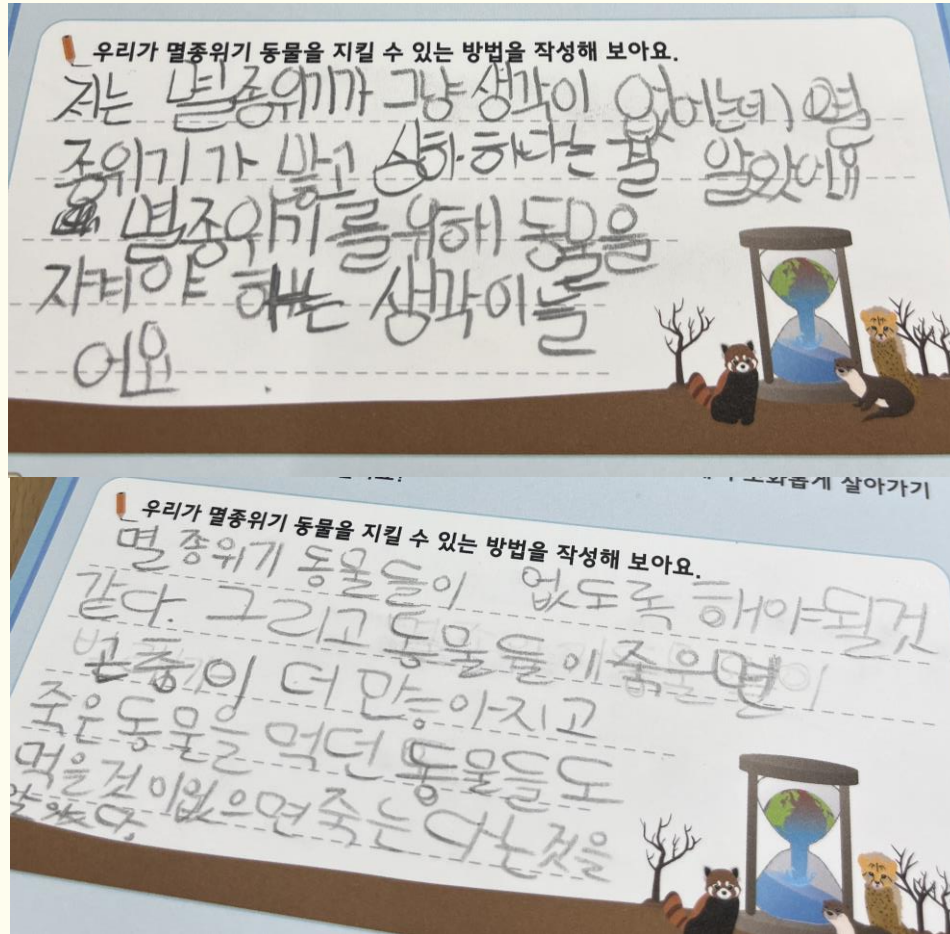 우리가 멸종위기 동물을 지킬 수 있는 방법을 작성해 보아요.
저는 멸종위기가 그냥 생각이 없었는데 멸
종위기가 많고 심하다는 걸 알았어요
멸종위기를 위해 동물을
지켜야 하는 생각이 들
어요.
살아가기
우리가 멸종위기 동물을 지킬 수 있는 방법을 작성해 보아요.
멸종위기 동물들이 없도록 해야될것
같다. 그리고 동물들이 죽으면
곤충이 더 많아지고
죽은동물을 먹던 동물들도
먹을것이없으면 죽는다는것을
알았다.